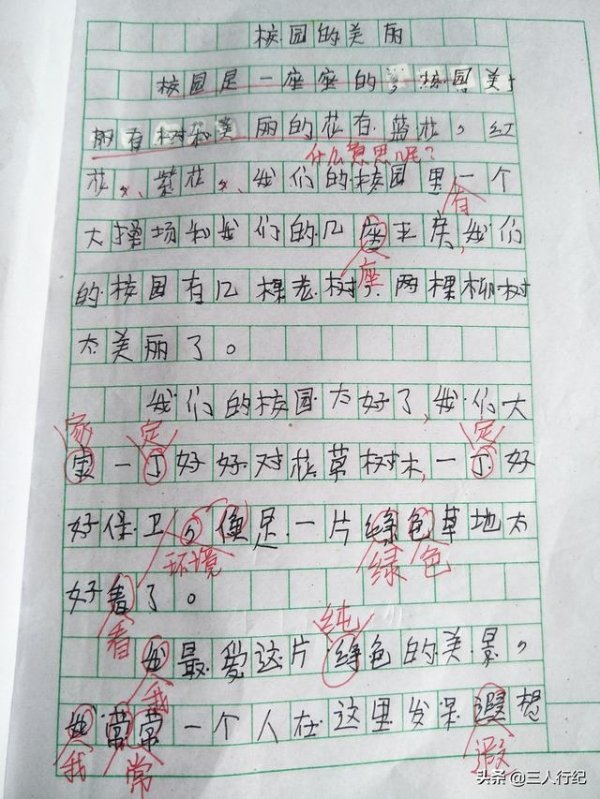 校园的美丽
校园是一座座的，校园美
丽有树和美丽的花有蓝花，红
什么意思呢？
花、紫花、我们的校园里一个
有
大操场和我们的几座王房，我们
座
的校园有几棵老树，两棵柳树
太美丽了。
我们的校园太好了，我们大
家 定 定
家一丁好好对花草树木，一丁好
好保卫，像是一片绿色草地太
环境 绿 色
好看了。
看 纯
我最爱这片绿色的美景。
我
我常常一个人在这里发呆遐想
我 常 遐
头条@三人行纪